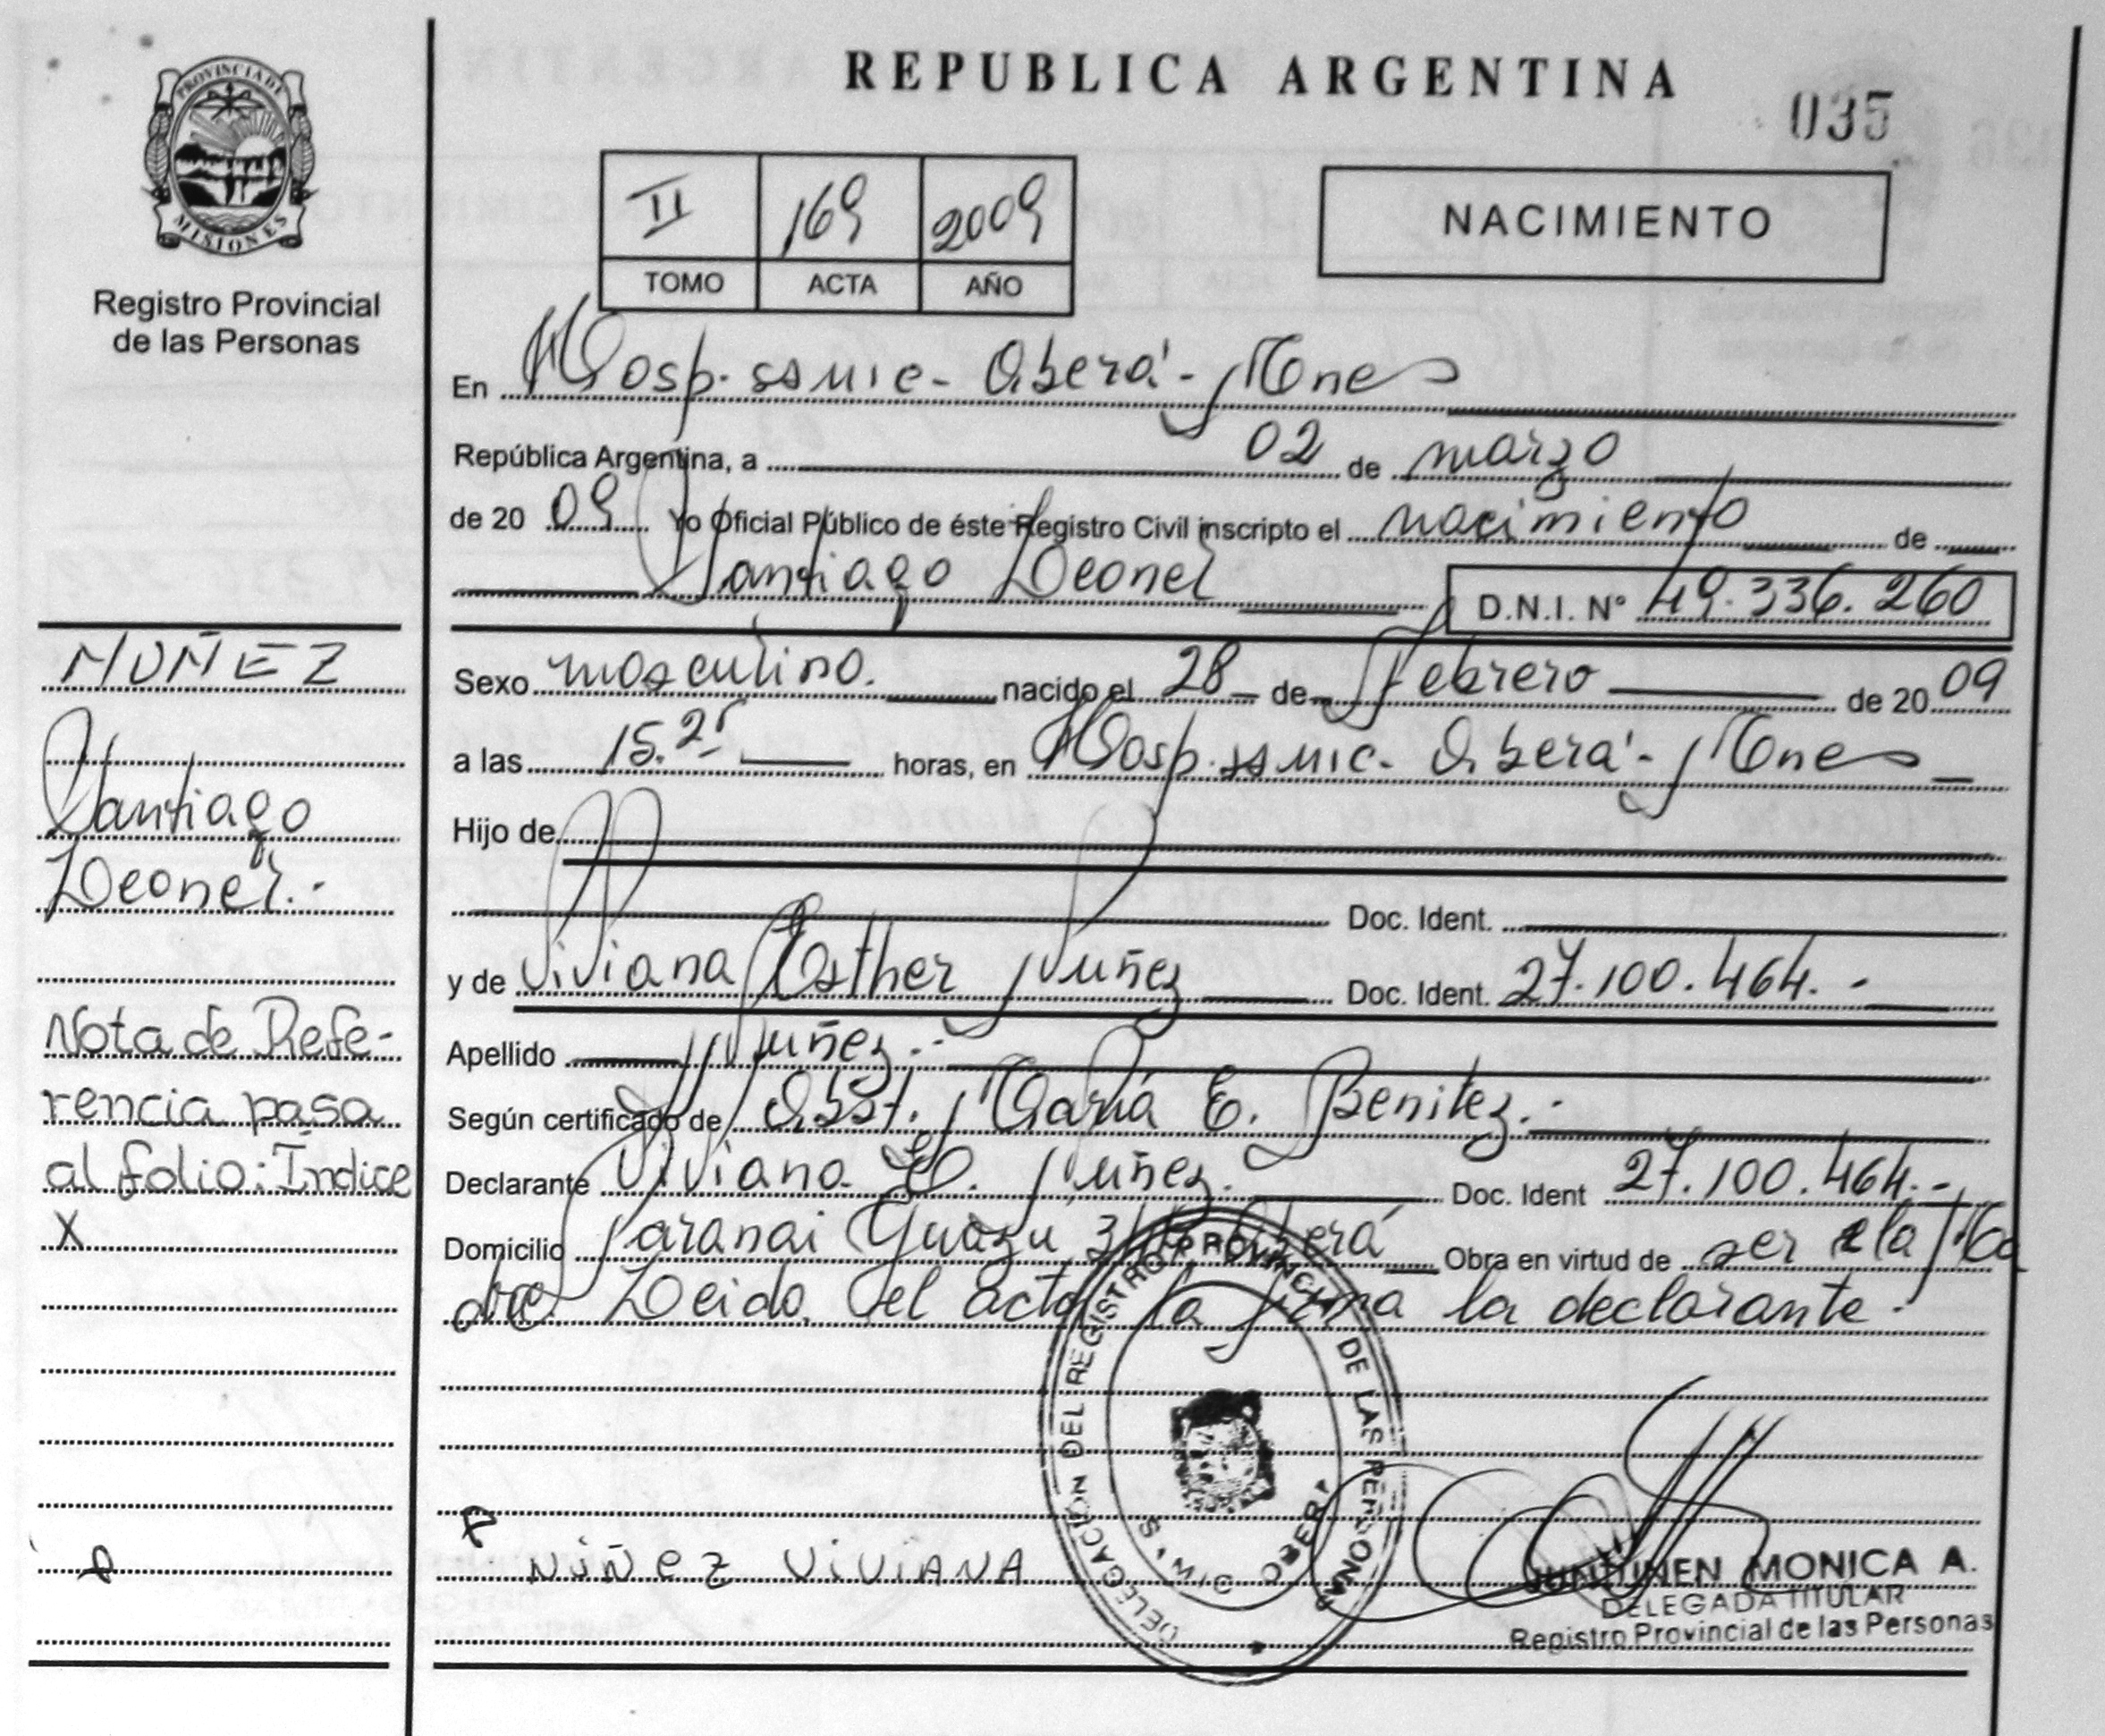 PROVINCIA DE
MISIONES
Registro Provincial
de las Personas
REPUBLICA ARGENTINA
035
II 169 2009
TOMO ACTA AÑO
NACIMIENTO
En Hosp. SSMIC - Oberá - Mnes
República Argentina, a 02 de marzo
de 20 09 Yo Oficial Público de éste Registro Civil inscripto el nacimiento de
Santiago Leonel D.N.I. N° 49.336.260
Sexo masculino. nacido el 28 de Febrero de 20 09
a las 15.25 horas, en Hosp. SSMIC - Oberá - Mnes
Hijo de
Doc. Ident.
y de Viviana Esther Nuñez Doc. Ident. 27.100.464.-
Apellido Nuñez.-
Según certificado de Obst. María E. Benitez.-
Declarante Viviana E. Nuñez. Doc. Ident 27.100.464.-
Domicilio Paranai Guazu Oberá Obra en virtud de ser la Ma
dre. Leida el acta la firma la declarante.
NUÑEZ
Santiago
Leonel.-
Nota de Refe-
rencia pasa
al folio: Índice
X
DELEGACIÓN DEL REGISTRO PROVINCIAL DE LAS PERSONAS
OBERA
NUÑEZ ViViANA
JUNTUNEN MONICA A.
DELEGADA TITULAR
Registro Provincial de las Personas